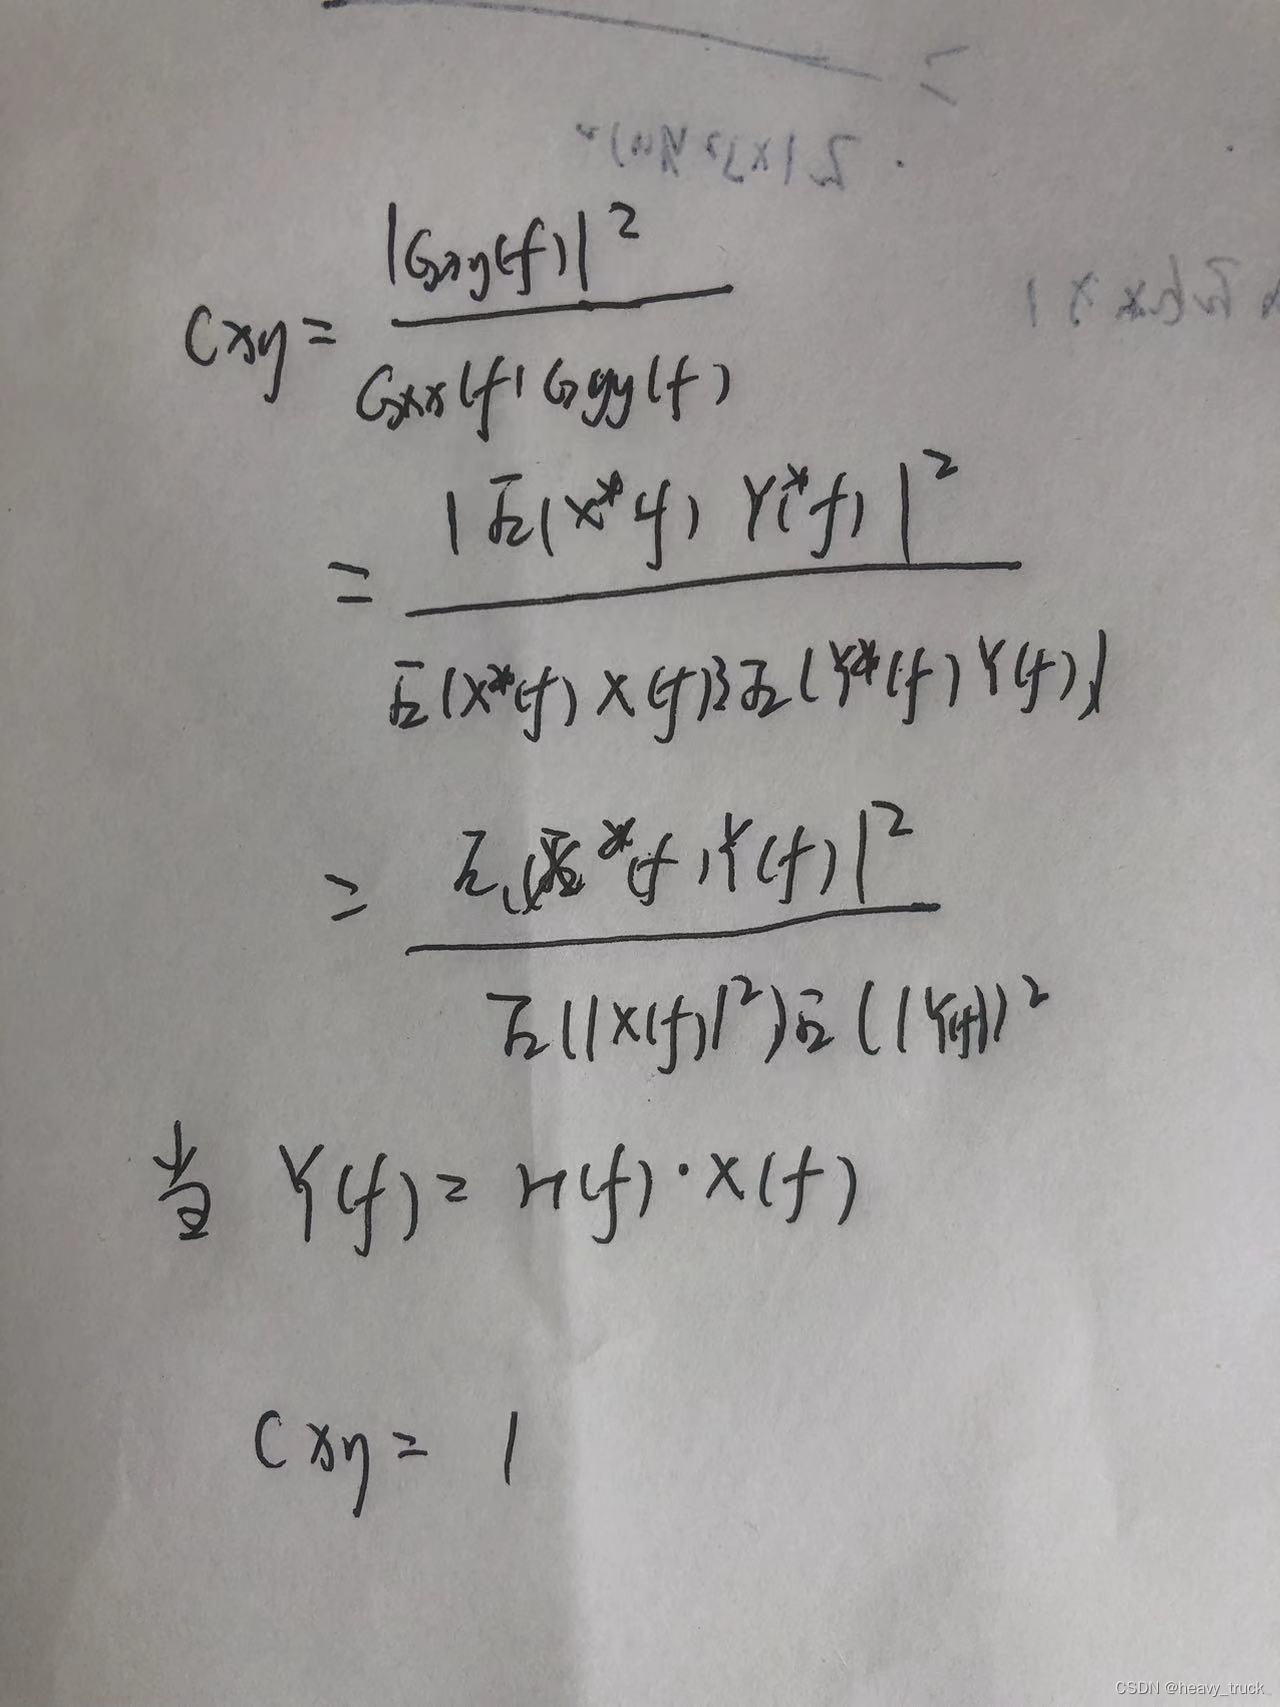 Cxy = |Gxy(f)|² / Gxx(f) Gyy(f)
= |E(X*(f) Y*(f)|² / E(X*(f) X(f)) E(Y*(f) Y(f))
= E(X*(f) Y(f)|² / E(|X(f)|²) E(|Y(f)|)²
当 Y(f) = H(f)·X(f)
Cxy = 1
CSDN @heavy_truck